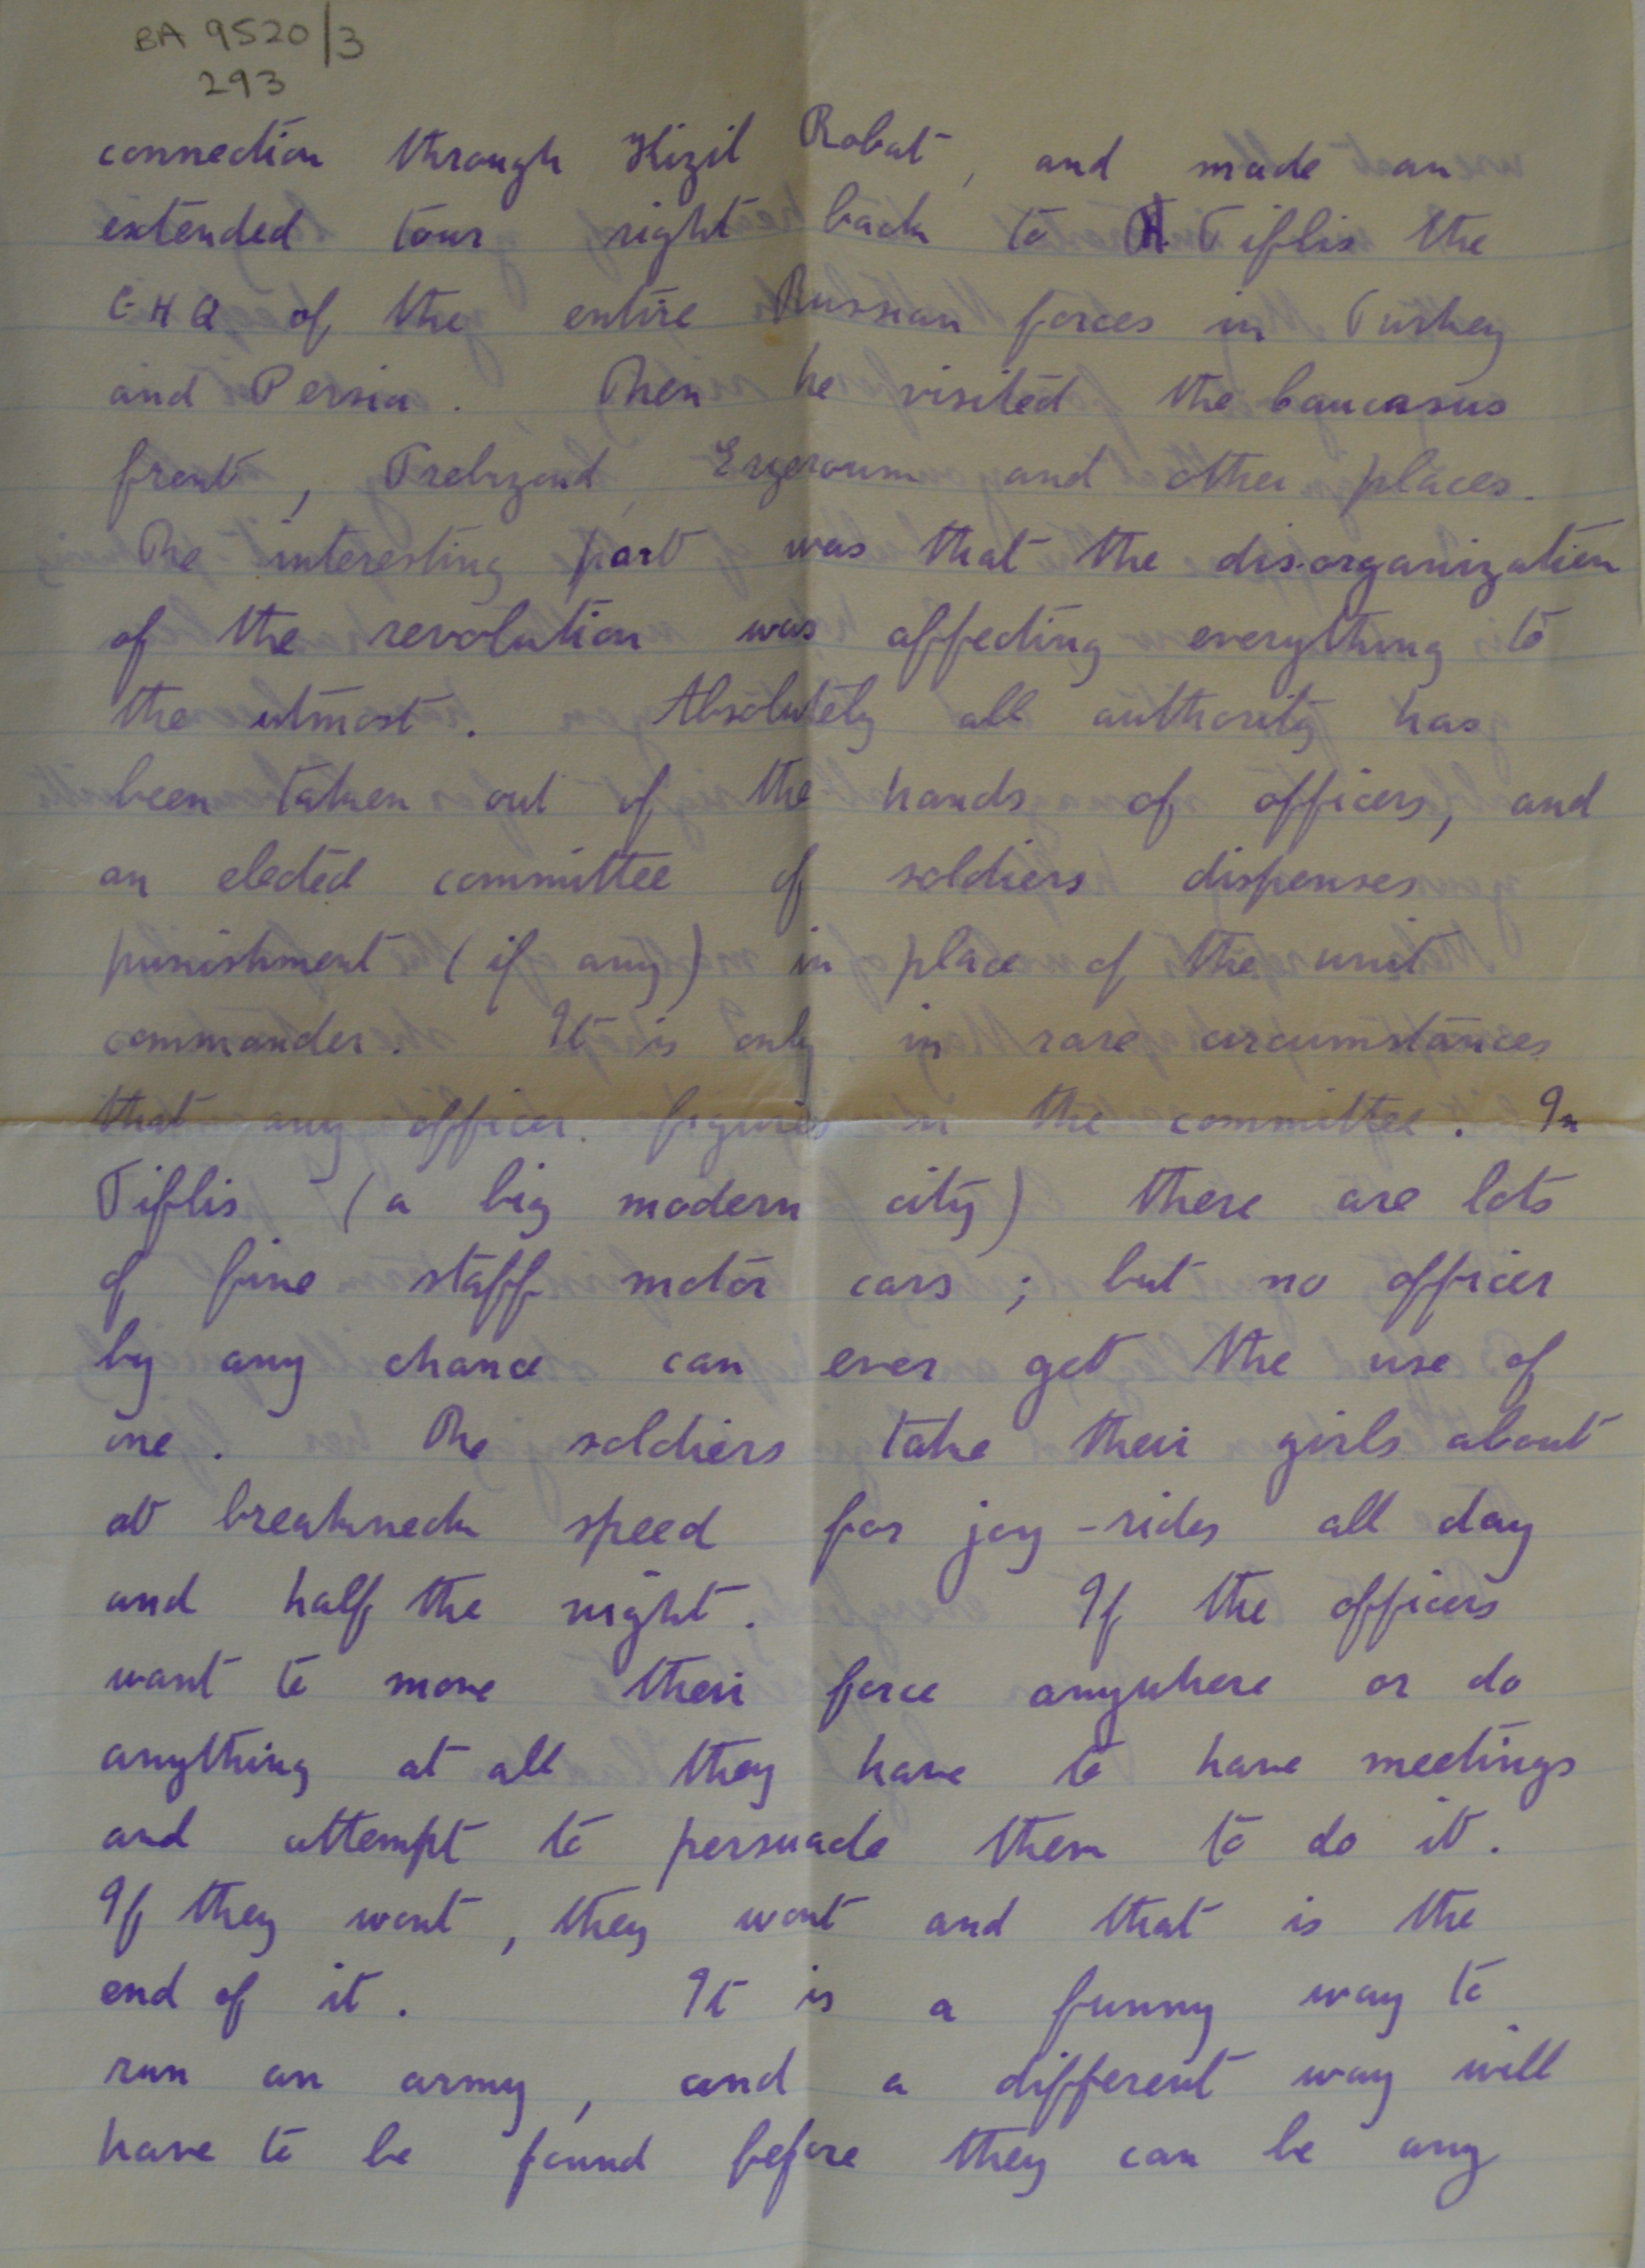 BA 9520/3
293
connection through Kizil Robat, and made an
extended tour right back to Tiflis the
GHQ of the entire Russian forces in Turkey
and Persia. Then he visited the Caucasus
front, Trebizond, Erzeroum and other places.
The interesting part was that the disorganization
of the revolution was affecting everything to
the utmost. Absolutely all authority has
been taken out of the hands of officers, and
an elected committee of soldiers dispenses
punishment (if any) in place of the unit
commander. It is only in rare circumstances
that any officer figures in the committee. In
Tiflis (a big modern city) there are lots
of fine staff motor cars; but no officer
by any chance can ever get the use of
one. The soldiers take their girls about
at breakneck speed for joy-rides all day
and half the night. If the officers
want to move their force anywhere or do
anything at all they have to have meetings
and attempt to persuade them to do it.
If they wont, they wont and that is the
end of it. It is a funny way to
run an army, and a different way will
have to be found before they can be any